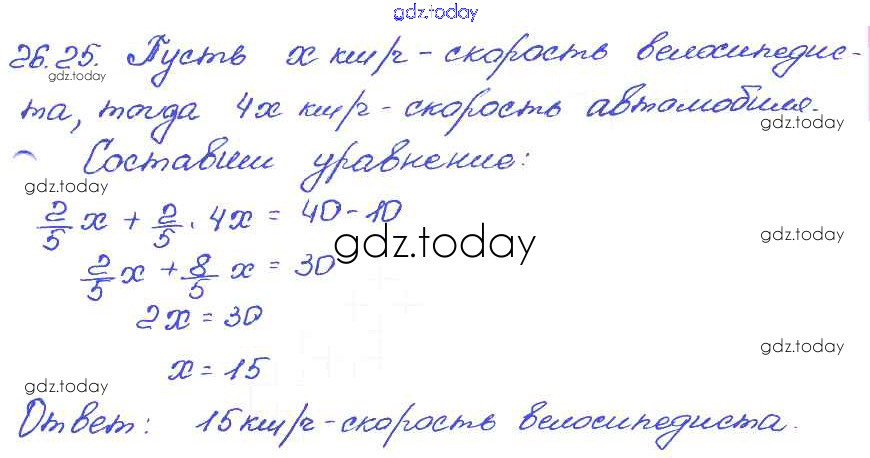 gdz.today
26.25. Пусть x км/ч - скорость велосипедис-
gdz.today
та, тогда 4x км/ч - скорость автомобиля.
gdz.today
Составим уравнение:
gdz.today
2/5 x + 2/5 · 4x = 40 - 10
gdz.today
gdz.today
2/5 x + 8/5 x = 30
2x = 30
gdz.today
x = 15
gdz.today
Ответ: 15 км/ч - скорость велосипедиста.